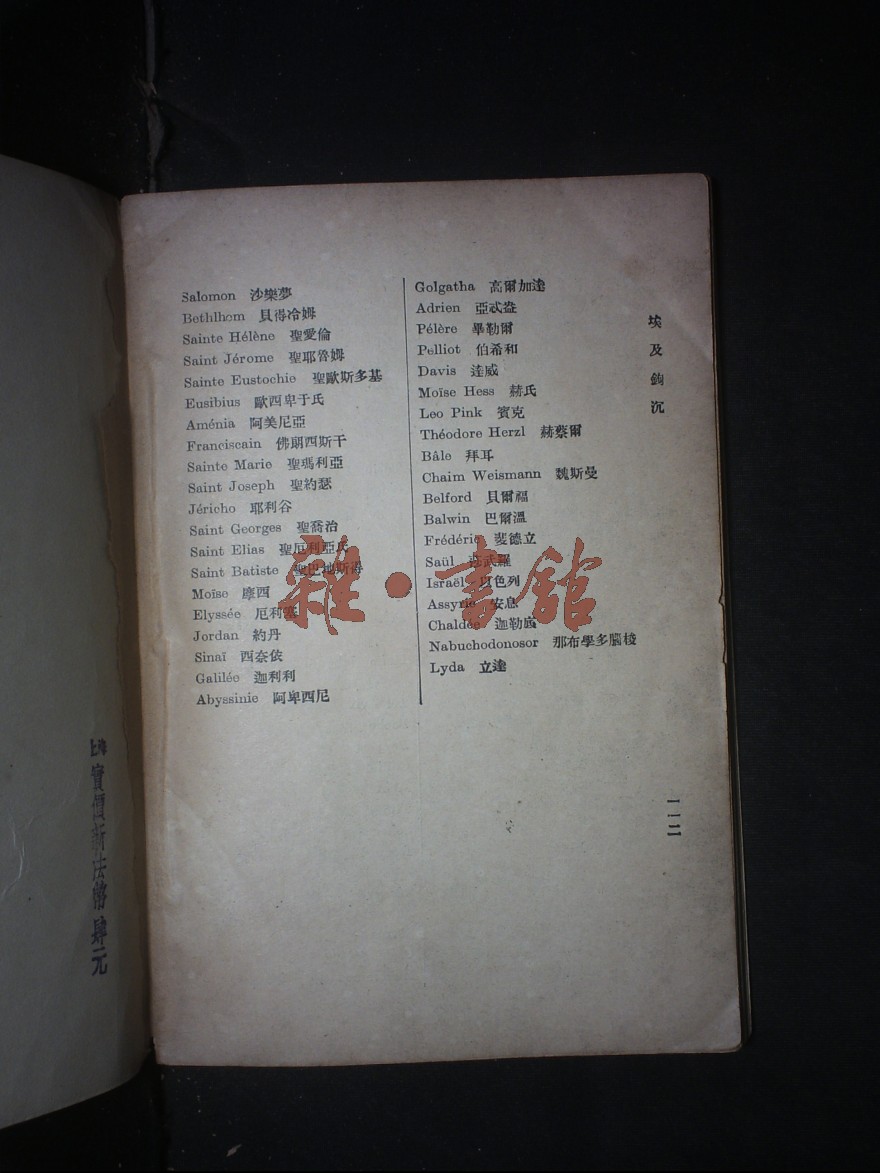 Salomon 沙樂夢
Bethlhem 貝得冷姆
Sainte Hélène 聖愛倫
Saint Jérome 聖耶魯姆
Sainte Eustochie 聖歐斯多基
Eusibius 歐西卑于氏
Aménia 阿美尼亞
Franciscain 佛朗西斯干
Sainte Marie 聖瑪利亞
Saint Joseph 聖約瑟
Jéricho 耶利谷
Saint Georges 聖喬治
Saint Elias 聖厄利亞氏
Saint Batiste 聖巴地斯得
Moïse 摩西
Elyssée 厄利塞
Jordan 約丹
Sinaï 西奈依
Galilée 迦利利
Abyssinie 阿卑西尼
Golgatha 高爾加達
Adrien 亞忒盎
Pélère 畢勒爾
Pelliot 伯希和
Davis 達威
Moïse Hess 赫氏
Leo Pink 賓克
Théodore Herzl 赫蔡爾
Bâle 拜耳
Chaim Weismann 魏斯曼
Belford 貝爾福
Balwin 巴爾溫
Frédéric 斐德立
Saül 武羅
Israël 以色列
Assyrie 安息
Chaldée 迦勒底
Nabuchodonosor 那布學多腦梭
Lyda 立達
埃及鉤沉
一一二
雜·書館
上海
實價新法幣肆元